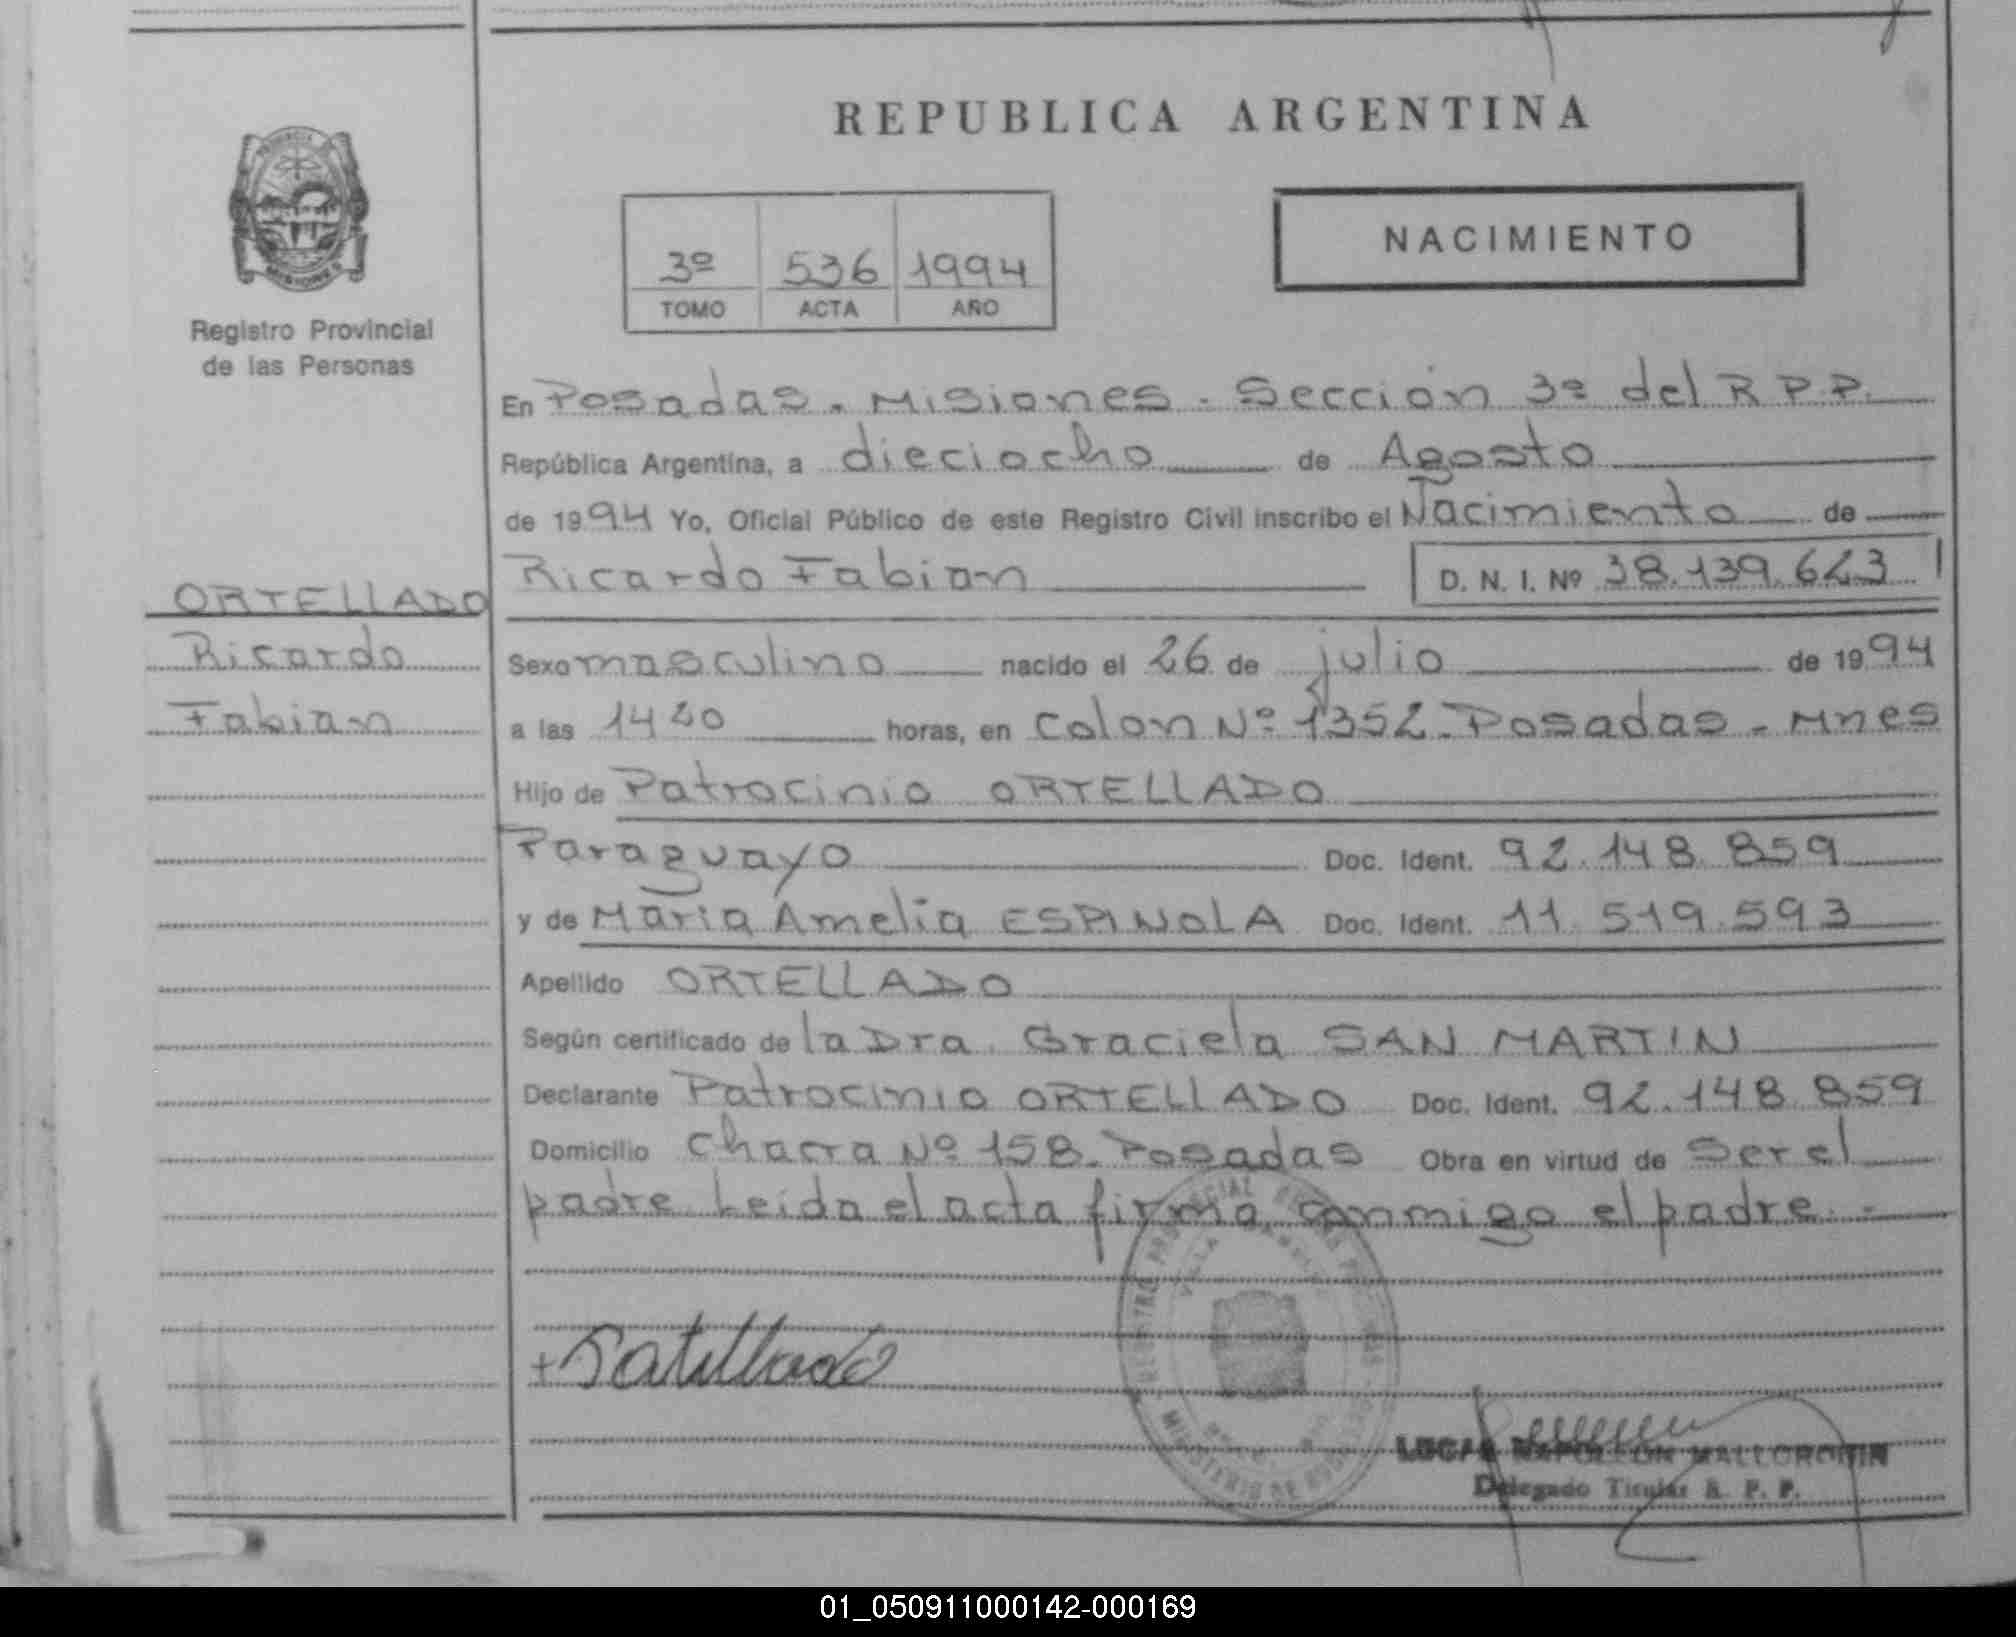 REPUBLICA ARGENTINA
NACIMIENTO
3º 536 1994
TOMO ACTA AÑO
Registro Provincial
de las Personas
En Posadas. Misiones. Sección 3ª del R.P.P.
República Argentina, a dieciocho de Agosto
de 1994 Yo, Oficial Público de este Registro Civil inscribo el Nacimiento de
Ricardo Fabian D. N. I. Nº 38.139.623
ORTELLADO
Ricardo
Fabian
Sexo masculino nacido el 26 de julio de 1994
a las 1420 horas, en Colon Nº 1352. Posadas. Mnes
Hijo de Patrocinio ORTELLADO
Paraguayo Doc. Ident. 92.148.859
y de Maria Amelia ESPINOLA Doc. Ident. 11.519.593
Apellido ORTELLADO
Según certificado de la Dra. Graciela SAN MARTIN
Declarante Patrocinio ORTELLADO Doc. Ident. 92.148.859
Domicilio Chacra Nº 158. Posadas Obra en virtud de Ser el
padre. Leida el acta firma conmigo el padre.-
REGISTRO PROVINCIAL
MINISTERIO DE
NAPOLEON
Delegado Titular R. P. P.
01_050911000142-000169